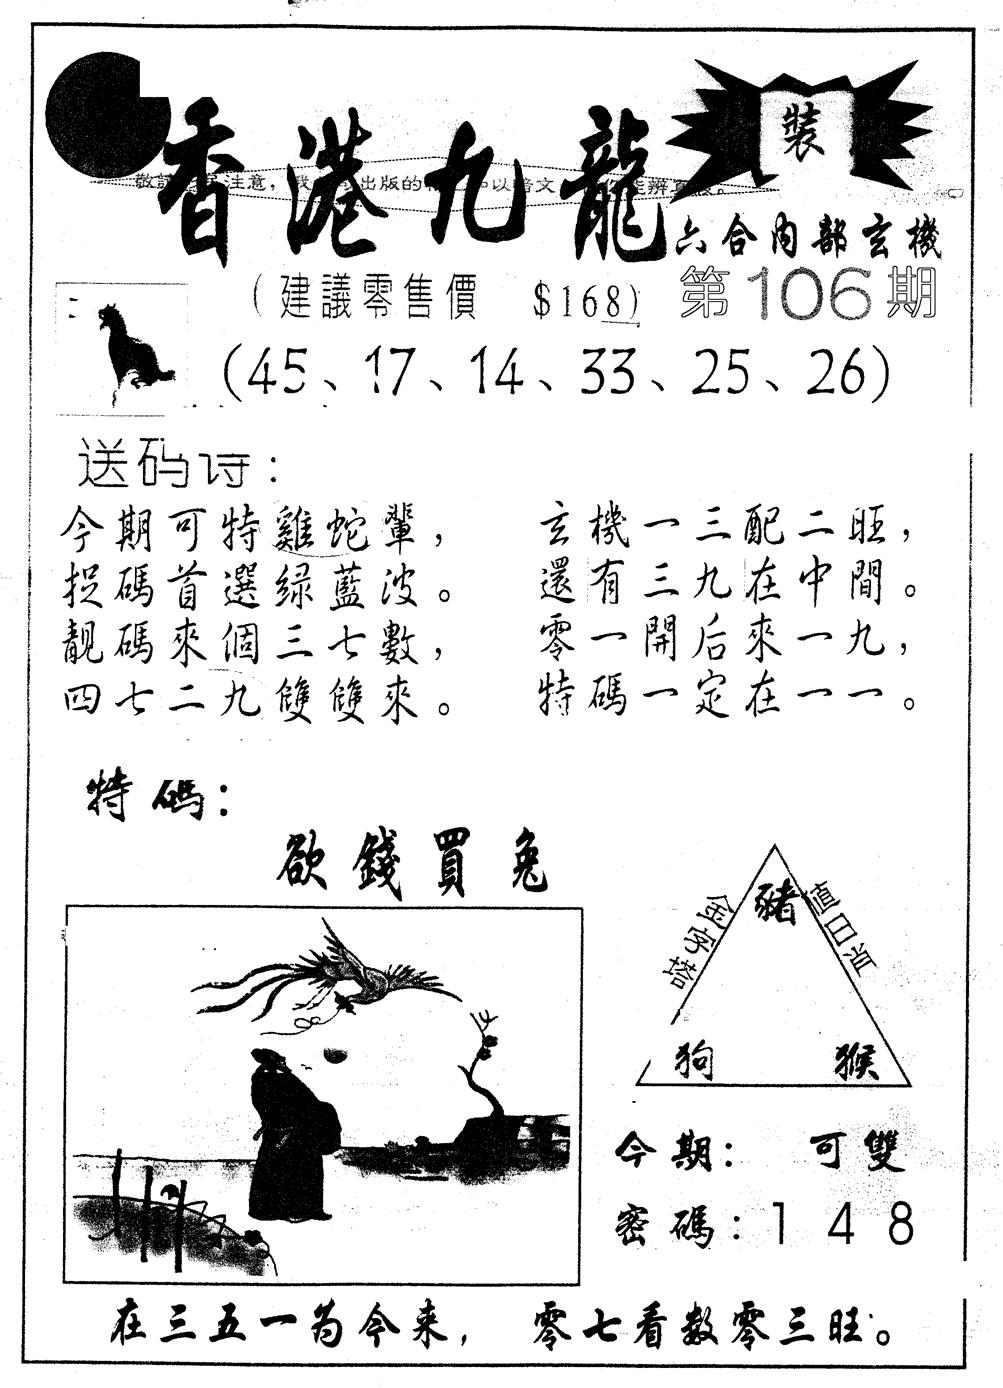 香港九龍
裝
六合內部玄機
(建議零售價 $168)
第106期
(45、17、14、33、25、26)
送码诗:
今期可特雞蛇輩,
捉碼首選綠藍波。
靚碼來個三七數,
四七二九雙雙來。
玄機一三配二旺,
還有三九在中間。
零一開后來一九,
特碼一定在一一。
特碼:
欲錢買兔
金字塔
值日肖
豬
狗 猴
今期: 可雙
密碼:1 4 8
在三五一為今来, 零七看数零三旺。